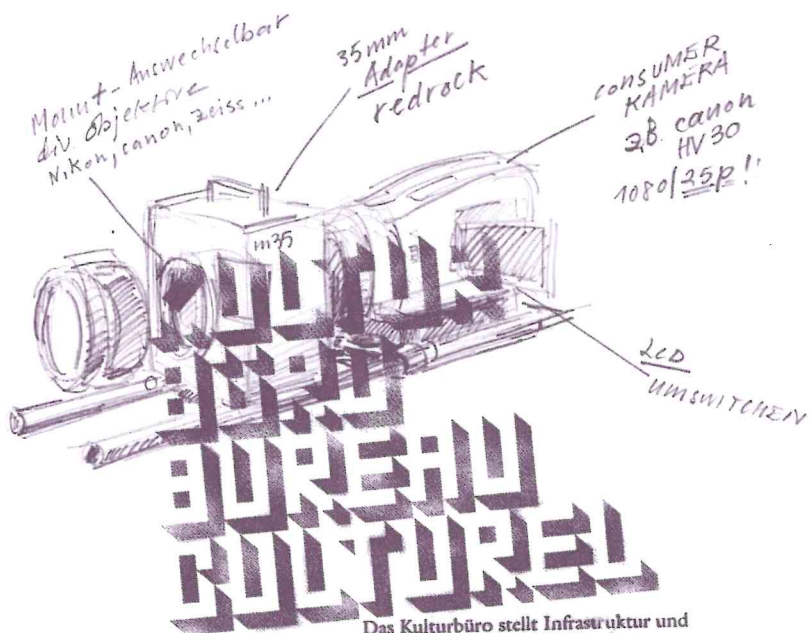 Mount-Auswechselbar
div. Objektive
Nikon, canon, Zeiss...
35mm
Adapter
redrock
CONSUMER
KAMERA
z.B. canon
HV30
1080/25p!!
m35
LCD
UMSWITCHEN
BUREAU
CULTUREL
Das Kulturbüro stellt Infrastruktur und